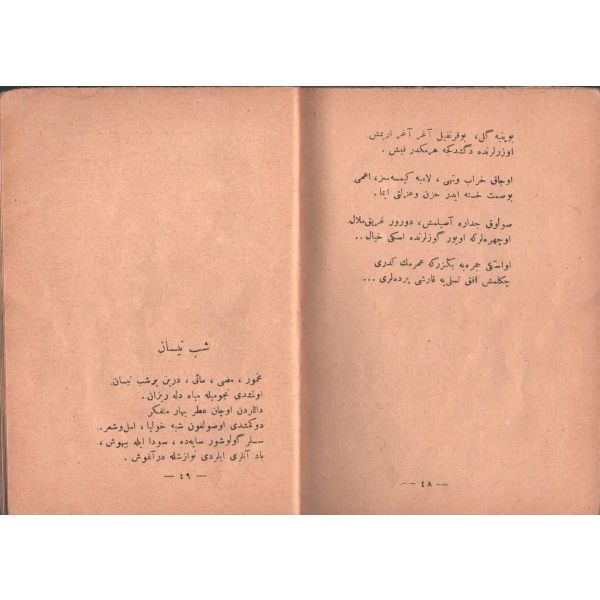 بوپنبه گل، بوقرنفیل آغر آغر اریمش
اوزرلرنده دگشدکجه هرمکدر قیش .
اوجاق خراب وتهی ، لامبه کیمسه‌سز، اعمی
بوصمت خسته ایدر حزن وعزلتی ایما .
صولوق جداره آصیلمش، دورور غریق ملال
اوچهره‌لرکه اویور گوزلرنده اسکی خیال ..
اواسکی حجره‌یه بکزرکه عمرمك کدری
چکلمش افق تسلی‌یه قارشی پرده‌لری ...
— ٤٨ —
شب نیسان
مخمور ، مضی ، مائی ، درین برشب نیسان
اولمشدی نجومیله میاه دله ریزان.
داللردن اوچان عطر بهار متفکر
دوکمشدی اوصولغون شبه خولیا ، امل‌وشعر.
سسلر گولوشور سایه‌ده ، سودا ایله بیهوش ،
باد آنلری ایلردی نوازشله درآغوش .
— ٤٩ —